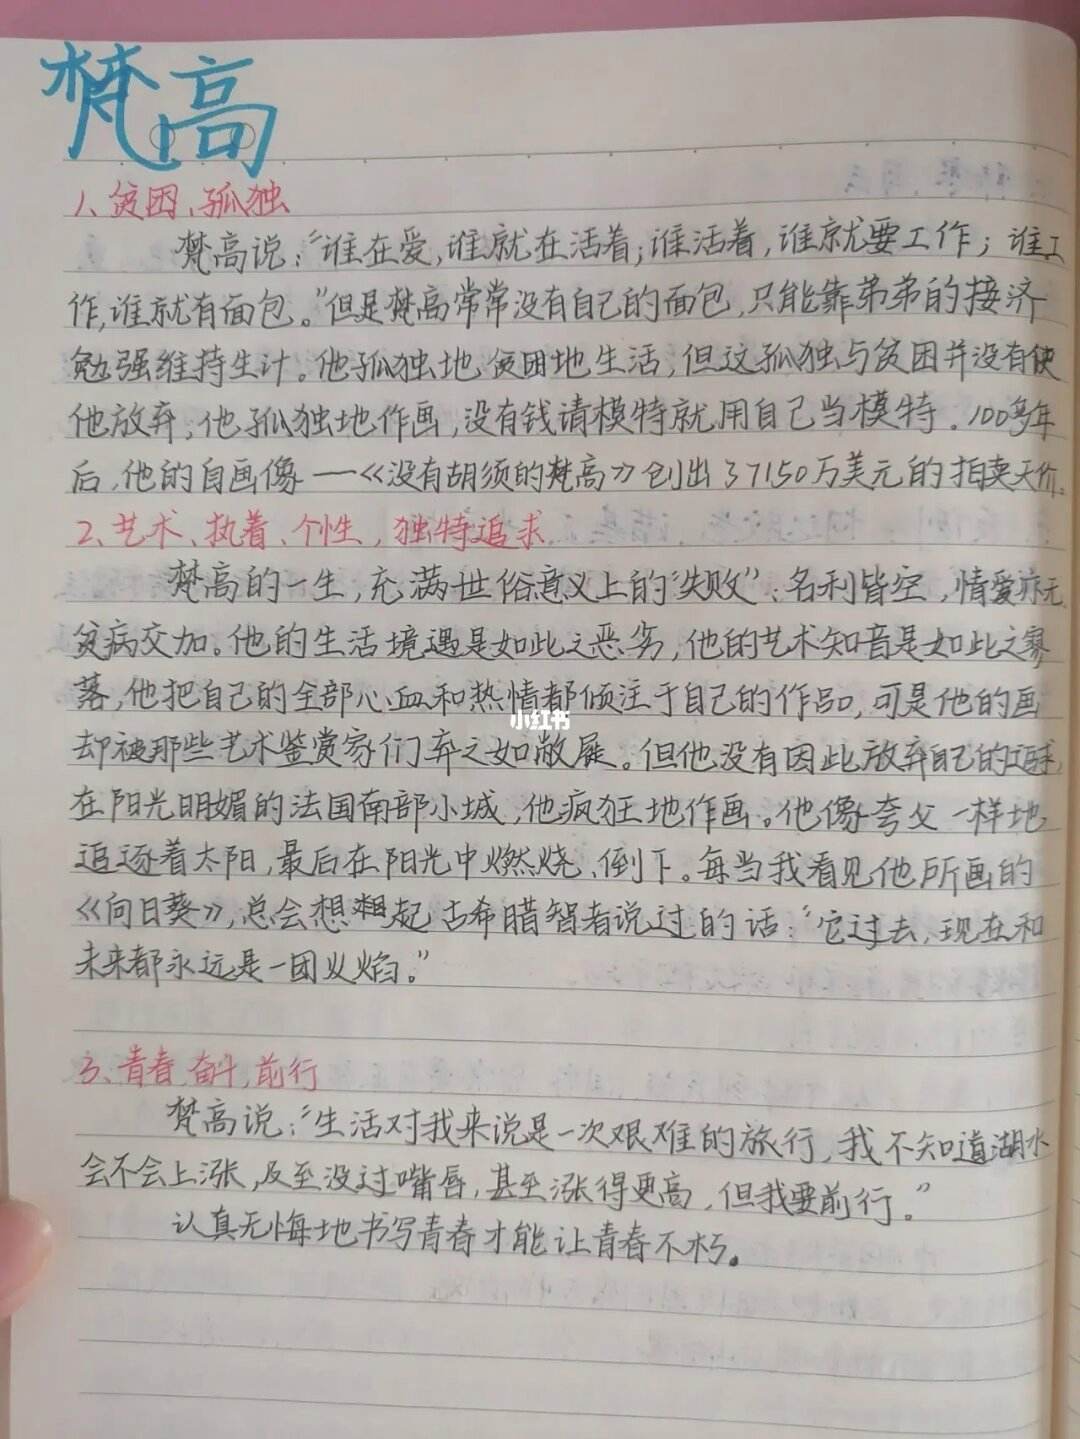 梵高
1、贫困、孤独
梵高说：“谁在爱，谁就在活着；谁活着，谁就要工作；谁工
作，谁就有面包。”但是梵高常常没有自己的面包，只能靠弟弟的接济
勉强维持生计。他孤独地、贫困地生活，但这孤独与贫困并没有使
他放弃，他孤独地作画，没有钱请模特就用自己当模特．100多年
后，他的自画像——《没有胡须的梵高》创出37150万美元的拍卖天价。
2、艺术、执着、个性，独特追求
梵高的一生，充满世俗意义上的“失败”：名利皆空，情爱亦无，
贫病交加。他的生活境遇是如此之恶劣，他的艺术知音是如此之寥
落，他把自己的全部心血和热情都倾注于自己的作品，可是他的画
却被那些艺术鉴赏家们弃之如敝屣。但他没有因此放弃自己的追求，
在阳光明媚的法国南部小城，他疯狂地作画。他像夸父一样地
追逐着太阳，最后在阳光中燃烧、倒下。每当我看见他所画的
《向日葵》，总会想起古希腊智者说过的话：“它过去，现在和
未来都永远是一团火焰。”
3、青春、奋斗，前行
梵高说：“生活对我来说是一次艰难的旅行，我不知道湖水
会不会上涨，及至没过嘴唇，甚至涨得更高，但我要前行。”
认真无悔地书写青春才能让青春不朽。
小红书